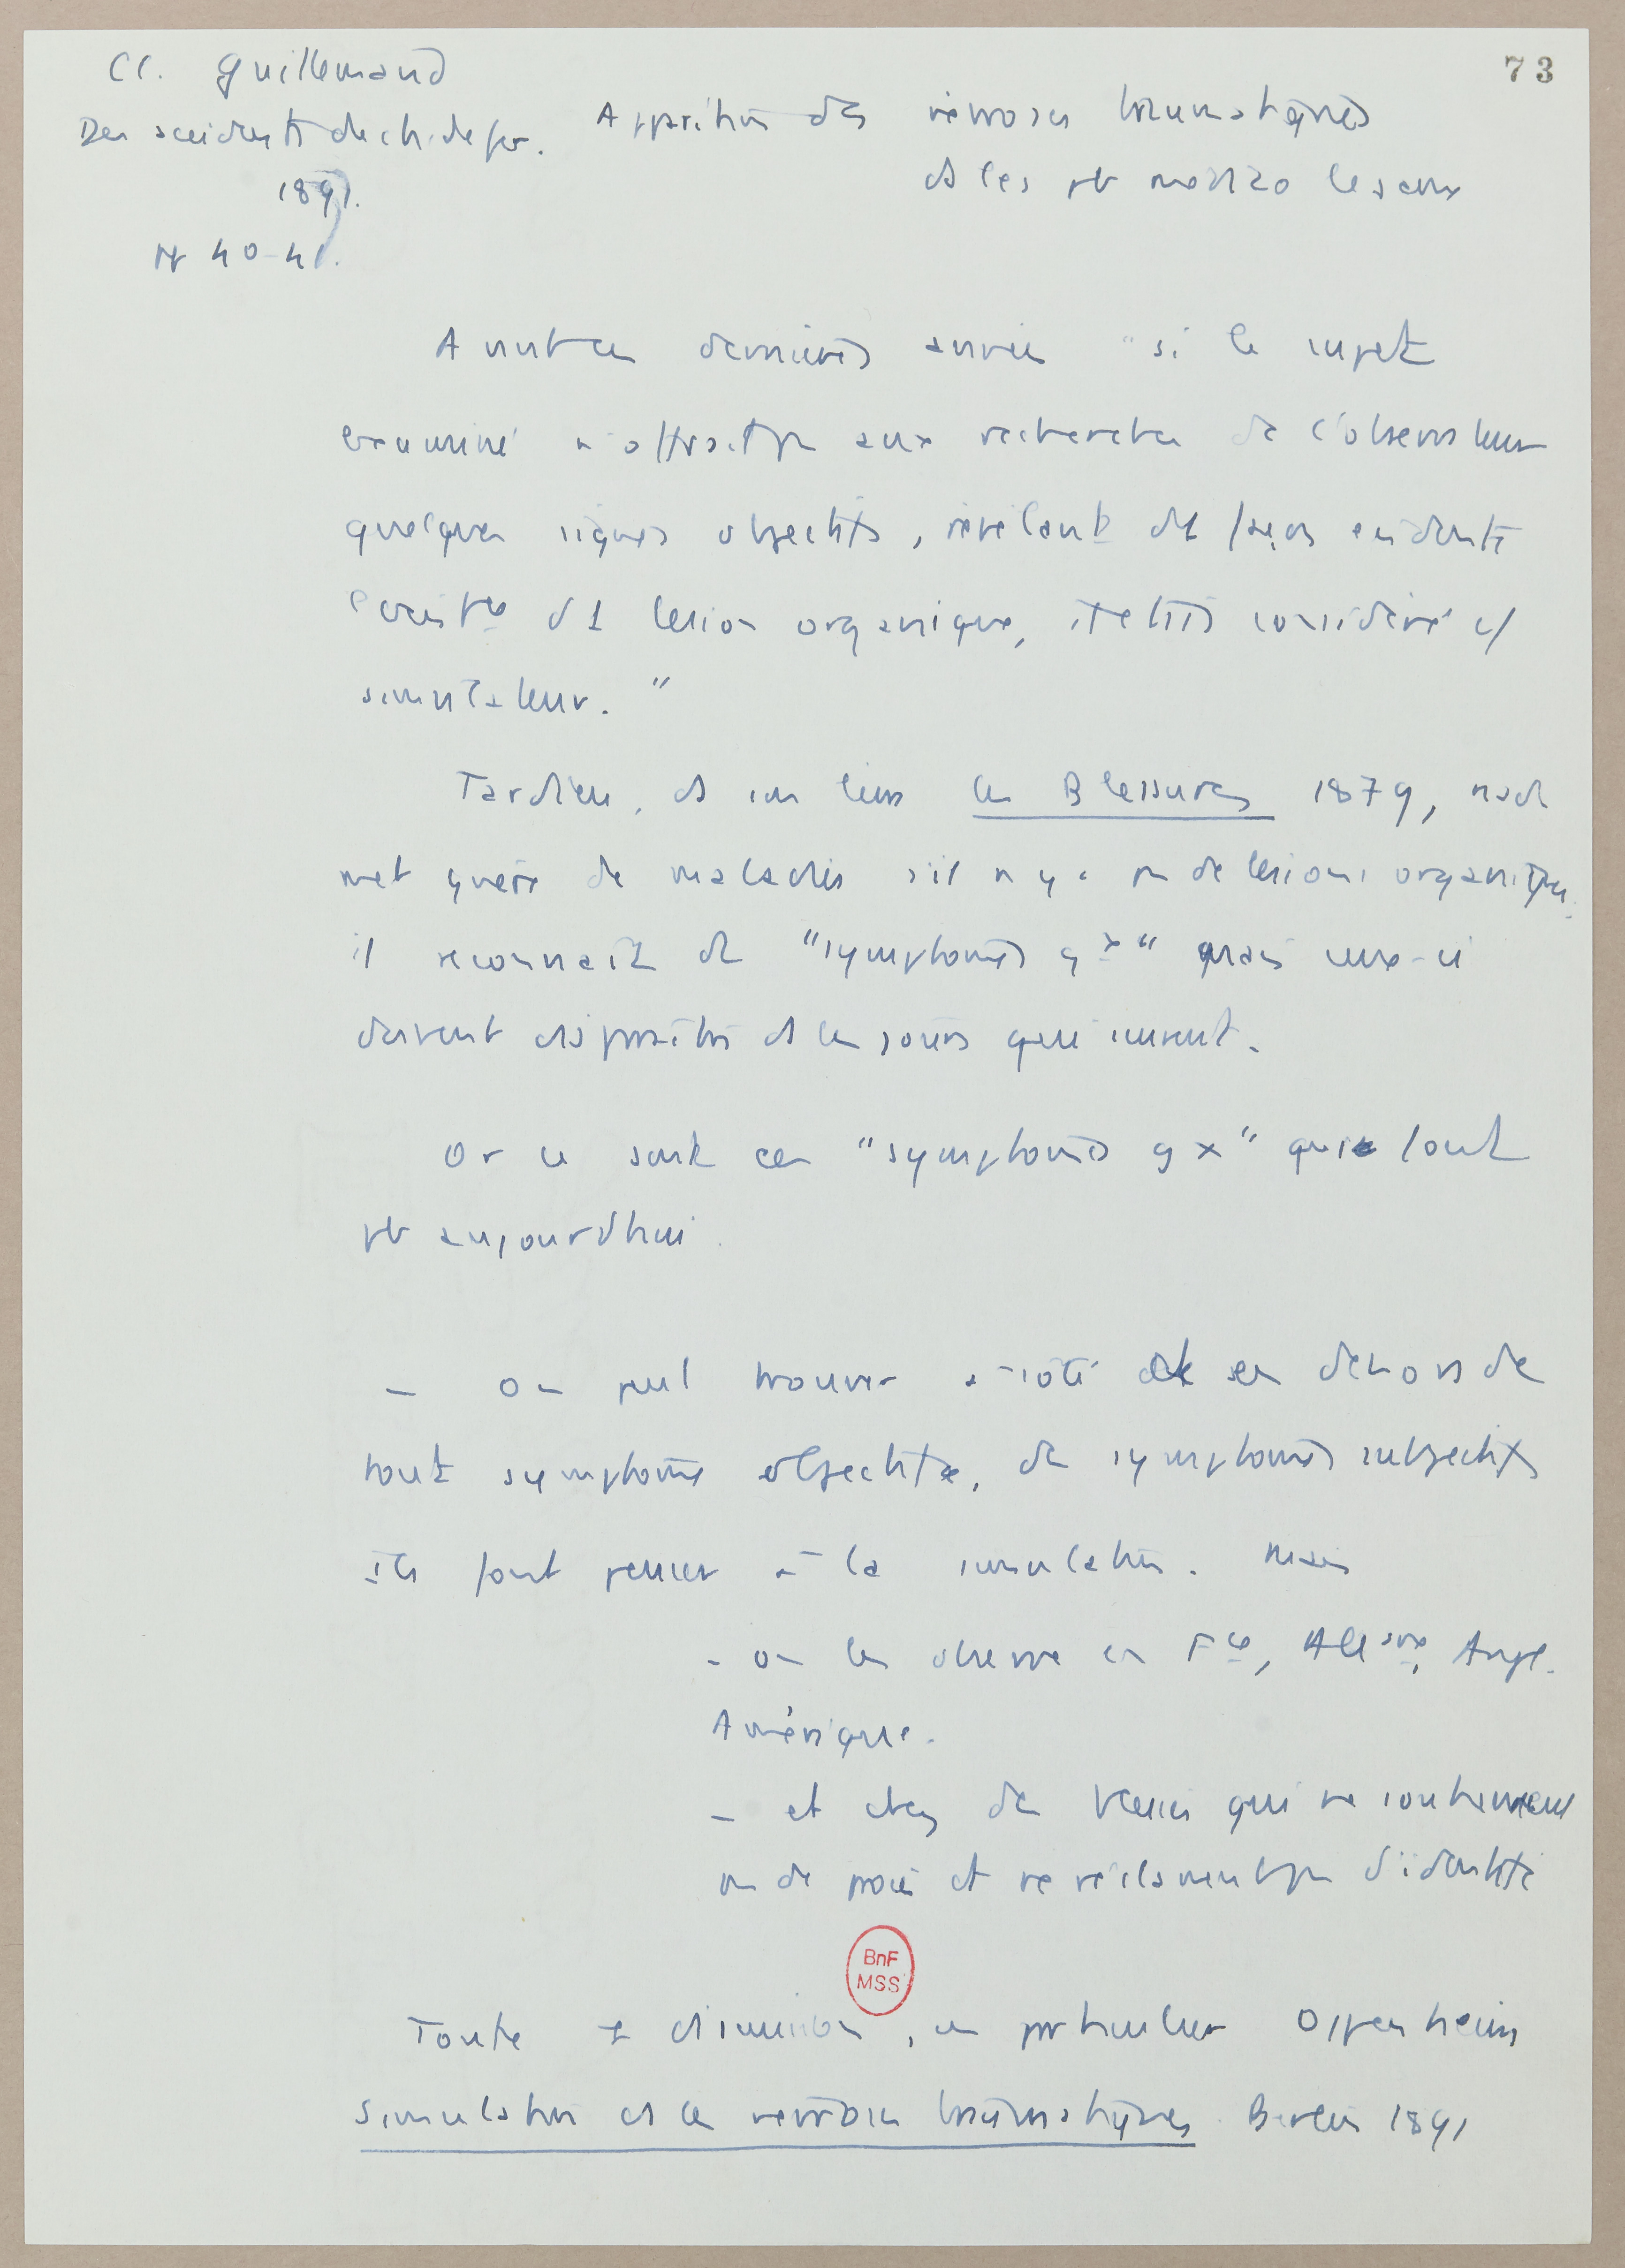 Cl. Guillemaud
73
Des accidents de ch. de fer.
1891.
pp 40-41.
Apparition des névroses traumatiques
ds les pb médico légaux
Avant ces dernières années "si le sujet
examiné n'offrait pas aux recherches de l'observateur
quelques signes objectifs, révélant d'1 façon évidente
l'exist ce d'1 lésion organique, il était considéré c/
simulateur."
Tardieu, ds son livre les Blessures 1879, n'ad
met guère de maladies s'il n'y a pas de lésions organiques.
il reconnaît des "symptômes gx" mais ceux-ci
doivent disparaître ds les jours qui suivent.
Or ce sont ces "symptômes gx" qui font
pb aujourd'hui.
- on peut trouver à côté et en dehors de
tout symptôme objectif, des symptômes subjectifs
Ils font penser à la simulation. Mais
- on les observe en Fce, Allgne, Angl.
Amérique.
- et chez des blessés qui ne soutiennent
pas de procès et ne réclament pas d'indemnité
Toute la discussion, en particulier Oppenheim
Simulation et les névroses traumatiques Berlin 1891
BnF
MSS